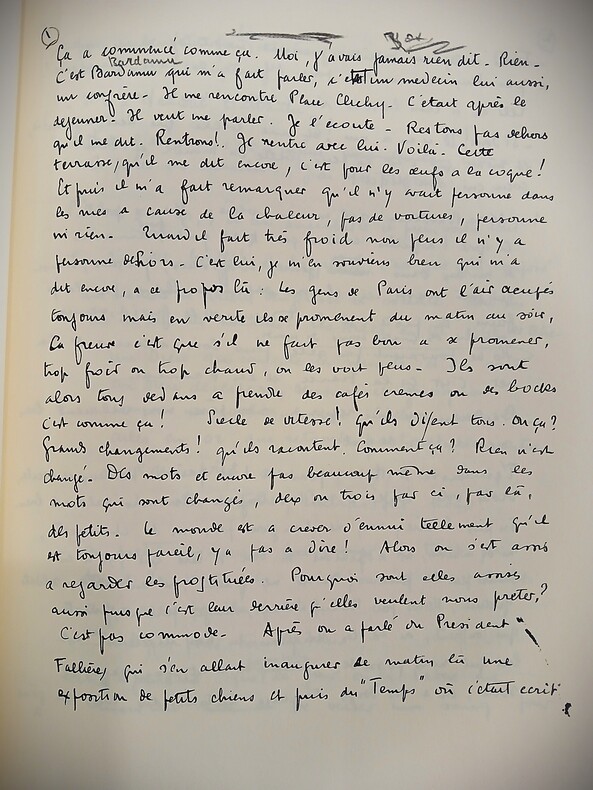 1
Ça a commencé comme ça. Moi, j'avais jamais rien dit. Rien.
Bardamu
C'est Bardamu qui m'a fait parler, c'était un medecin lui aussi,
un confrère. Il me rencontre Place Clichy. C'etait après le
dejeuner. Il veut me parler. Je l'ecoute. Restons pas dehors
qu'il me dit. Rentrons! Je rentre avec lui. Voilà. Cette
terrasse, qu'il me dit encore, c'est pour les œufs a la coque!
Et puis il m'a fait remarquer qu'il n'y avait personne dans
les rues a cause de la chaleur, pas de voitures, personne
ni rien. Quand il fait très froid non plus il n'y a
personne dehors. C'est lui, je m'en souviens bien qui m'a
dit encore, a ce propos là: Les gens de Paris ont l'air occupés
toujours mais en verite ils se promenent du matin au soir,
La preuve c'est que s'il ne fait pas bon a se promener,
trop froid ou trop chaud, on les voit plus. Ils sont
alors tous dedans a prendre des cafés cremes ou des bocks
c'est comme ça! Siecle de vitesse! Qu'ils disent tous. Où ça?
Grands changements! qu'ils racontent. Comment ça? Rien n'est
changé. Des mots et encore pas beaucoup même dans les
mots qui sont changés, deux ou trois par ci, par là,
des petits. Le monde est a crever d'ennui tellement qu'il
est toujours pareil, y a pas a dire! Alors on s'est assis
a regarder les prostituées. Pourquoi sont elles assises
aussi puisque c'est leur derrière qu'elles veulent nous prêter?
C'est pas commode. Après on a parlé du President
Fallières qui s'en allait inaugurer ce matin là une
exposition de petits chiens et puis du "Temps" où c'était ecrit.